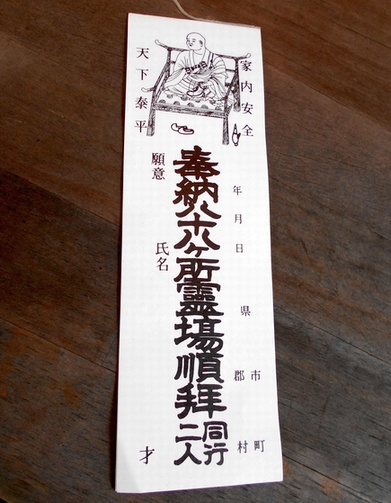 家内安全
年 月 日 県 市 町
郡 村
奉納八十八ヶ所霊場順拝同行二人
天下泰平
願意
氏名 才